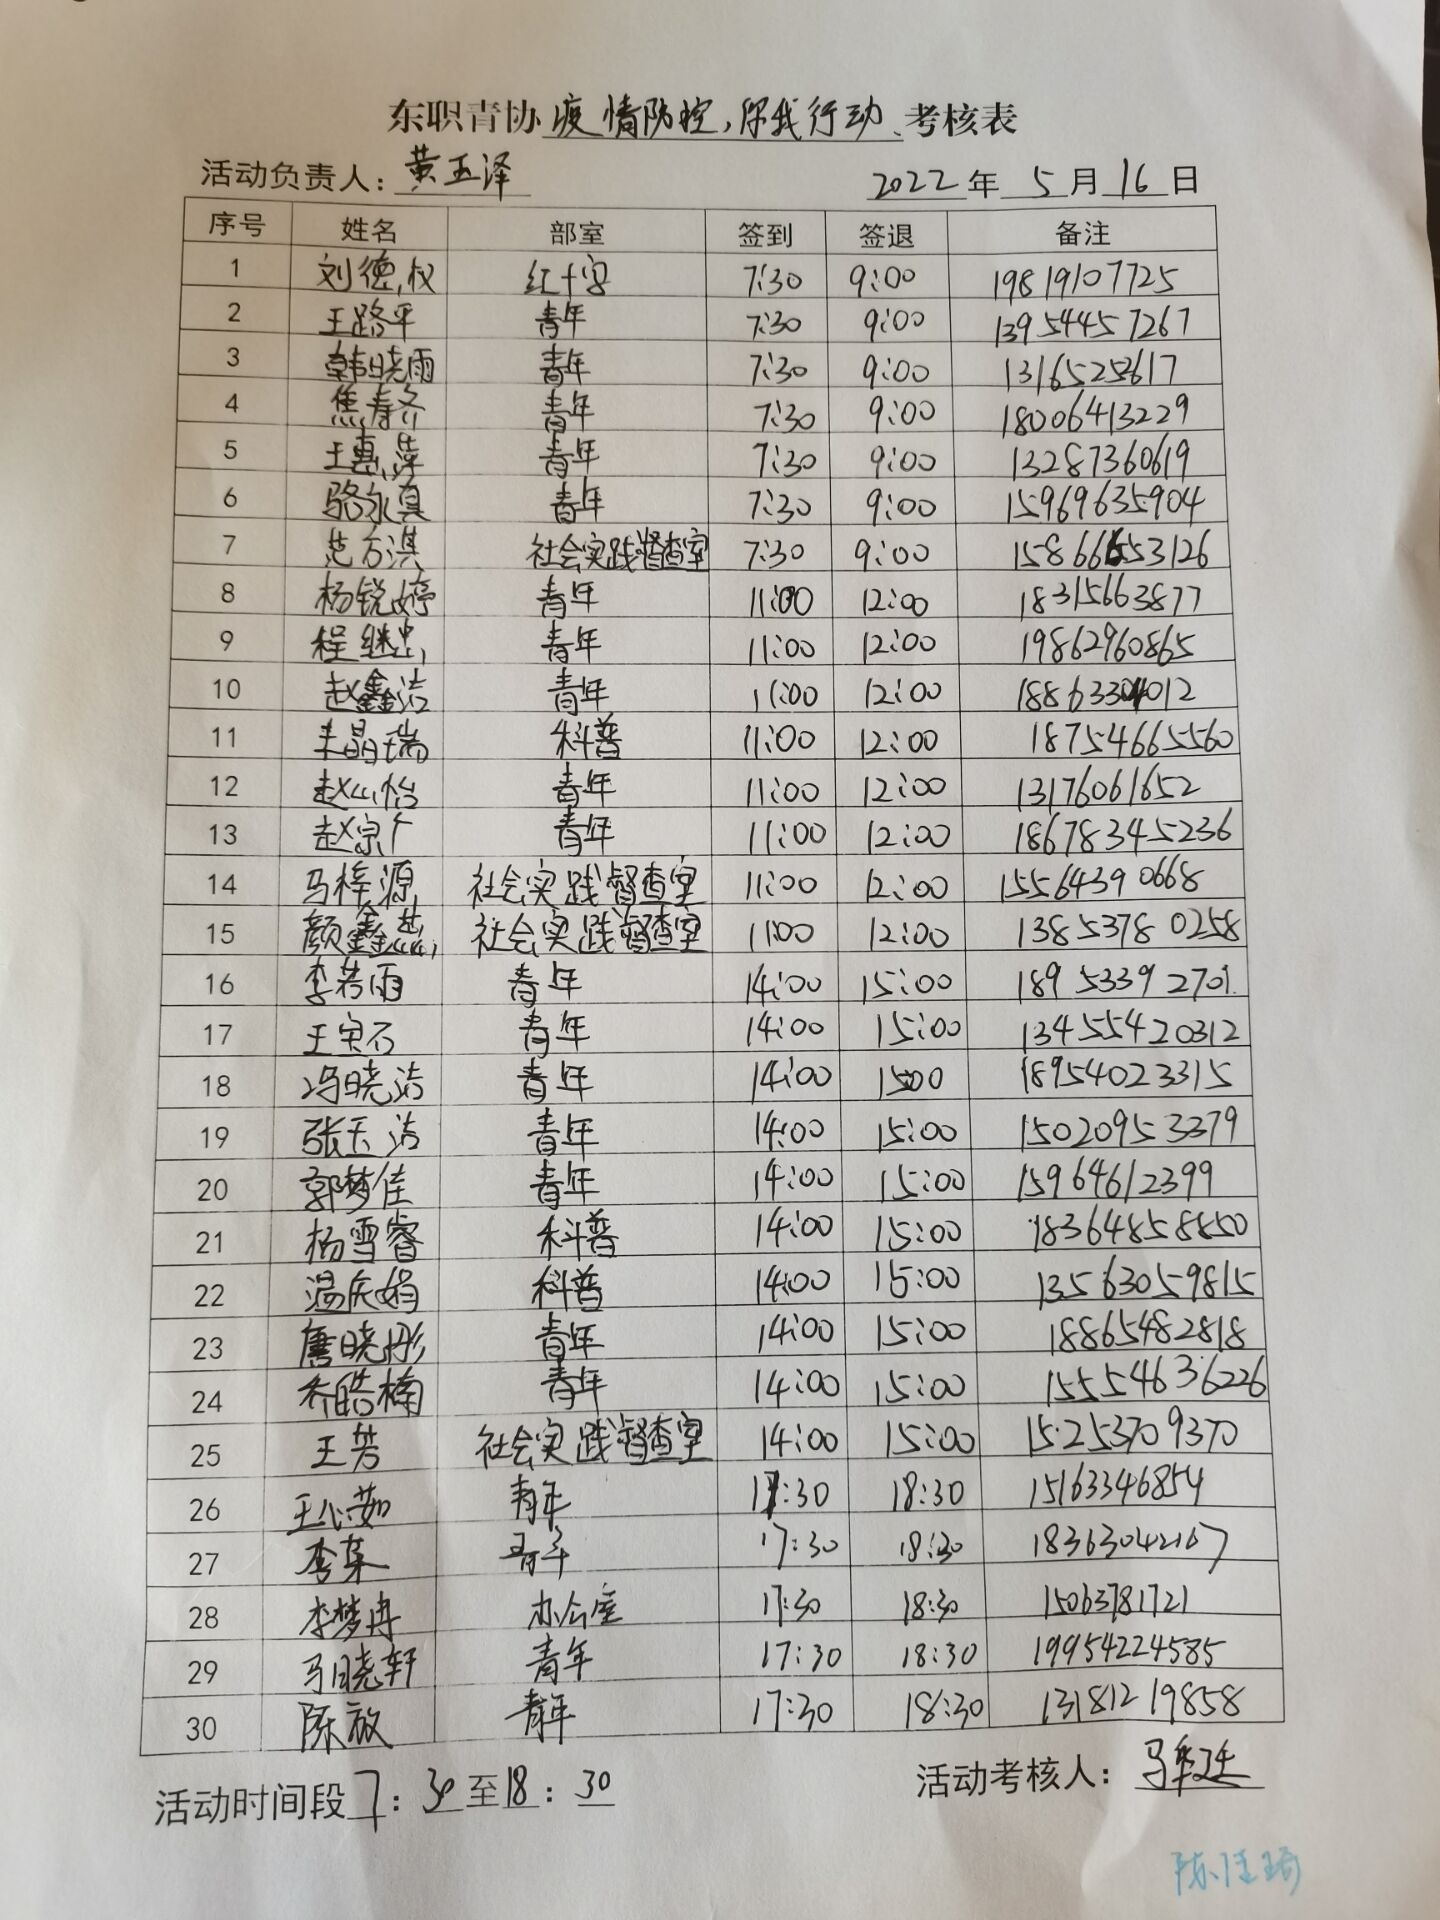 东职青协疫情防控，你我行动、考核表
活动负责人：黄玉泽 2022年5月16日
序号 姓名 部室 签到 签退 备注
1 刘德权 红十字 7:30 9:00 19819107725
2 王路平 青年 7:30 9:00 13954457267
3 韩晓雨 青年 7:30 9:00
4 焦春齐 青年 7:30 9:00 18006413229
5 王惠萍 青年 7:30 9:00 13287360619
6 骆永真 青年 7:30 9:00 15969635904
7 范方淇 社会实践督查室 7:30 9:00
8 杨锐婷 青年 11:00 12:00 18315663877
9 程继忠 青年 11:00 12:00 19862960865
10 赵鑫洁 青年 11:00 12:00
11 丰晶瑞 科普 11:00 12:00 18754665560
12 赵心怡 青年 11:00 12:00 13176061652
13 赵宗 青年 11:00 12:00 18678345236
14 马梓源 社会实践督查室 11:00 12:00 15564390668
15 颜鑫蕊 社会实践督查室 11:00 12:00 13853780258
16 李若雨 青年 14:00 15:00 18953392701
17 王宝石 青年 14:00 15:00 134555420312
18 冯晓洁 青年 14:00 15:00 18954023315
19 张玉洁 青年 14:00 15:00 15020953379
20 郭梦佳 青年 14:00 15:00 15964612399
21 杨雪睿 科普 14:00 15:00 18364858850
22 温庆娟 科普 14:00 15:00 13563059815
23 唐晓彤 青年 14:00 15:00 18865482818
24 乔皓楠 青年 14:00 15:00 15554636226
25 王芳 社会实践督查室 14:00 15:00 15253709370
26 王心茹 青年 17:30 18:30 15163346854
27 李荣 青年 17:30 18:30 18363042167
28 李梦冉 办公室 17:30 18:30 15063781721
29 马晓轩 青年 17:30 18:30 19954224585
30 陈放 青年 17:30 18:30 13181219858
活动时间段7：30至18：30 活动考核人：马
陈佳琦